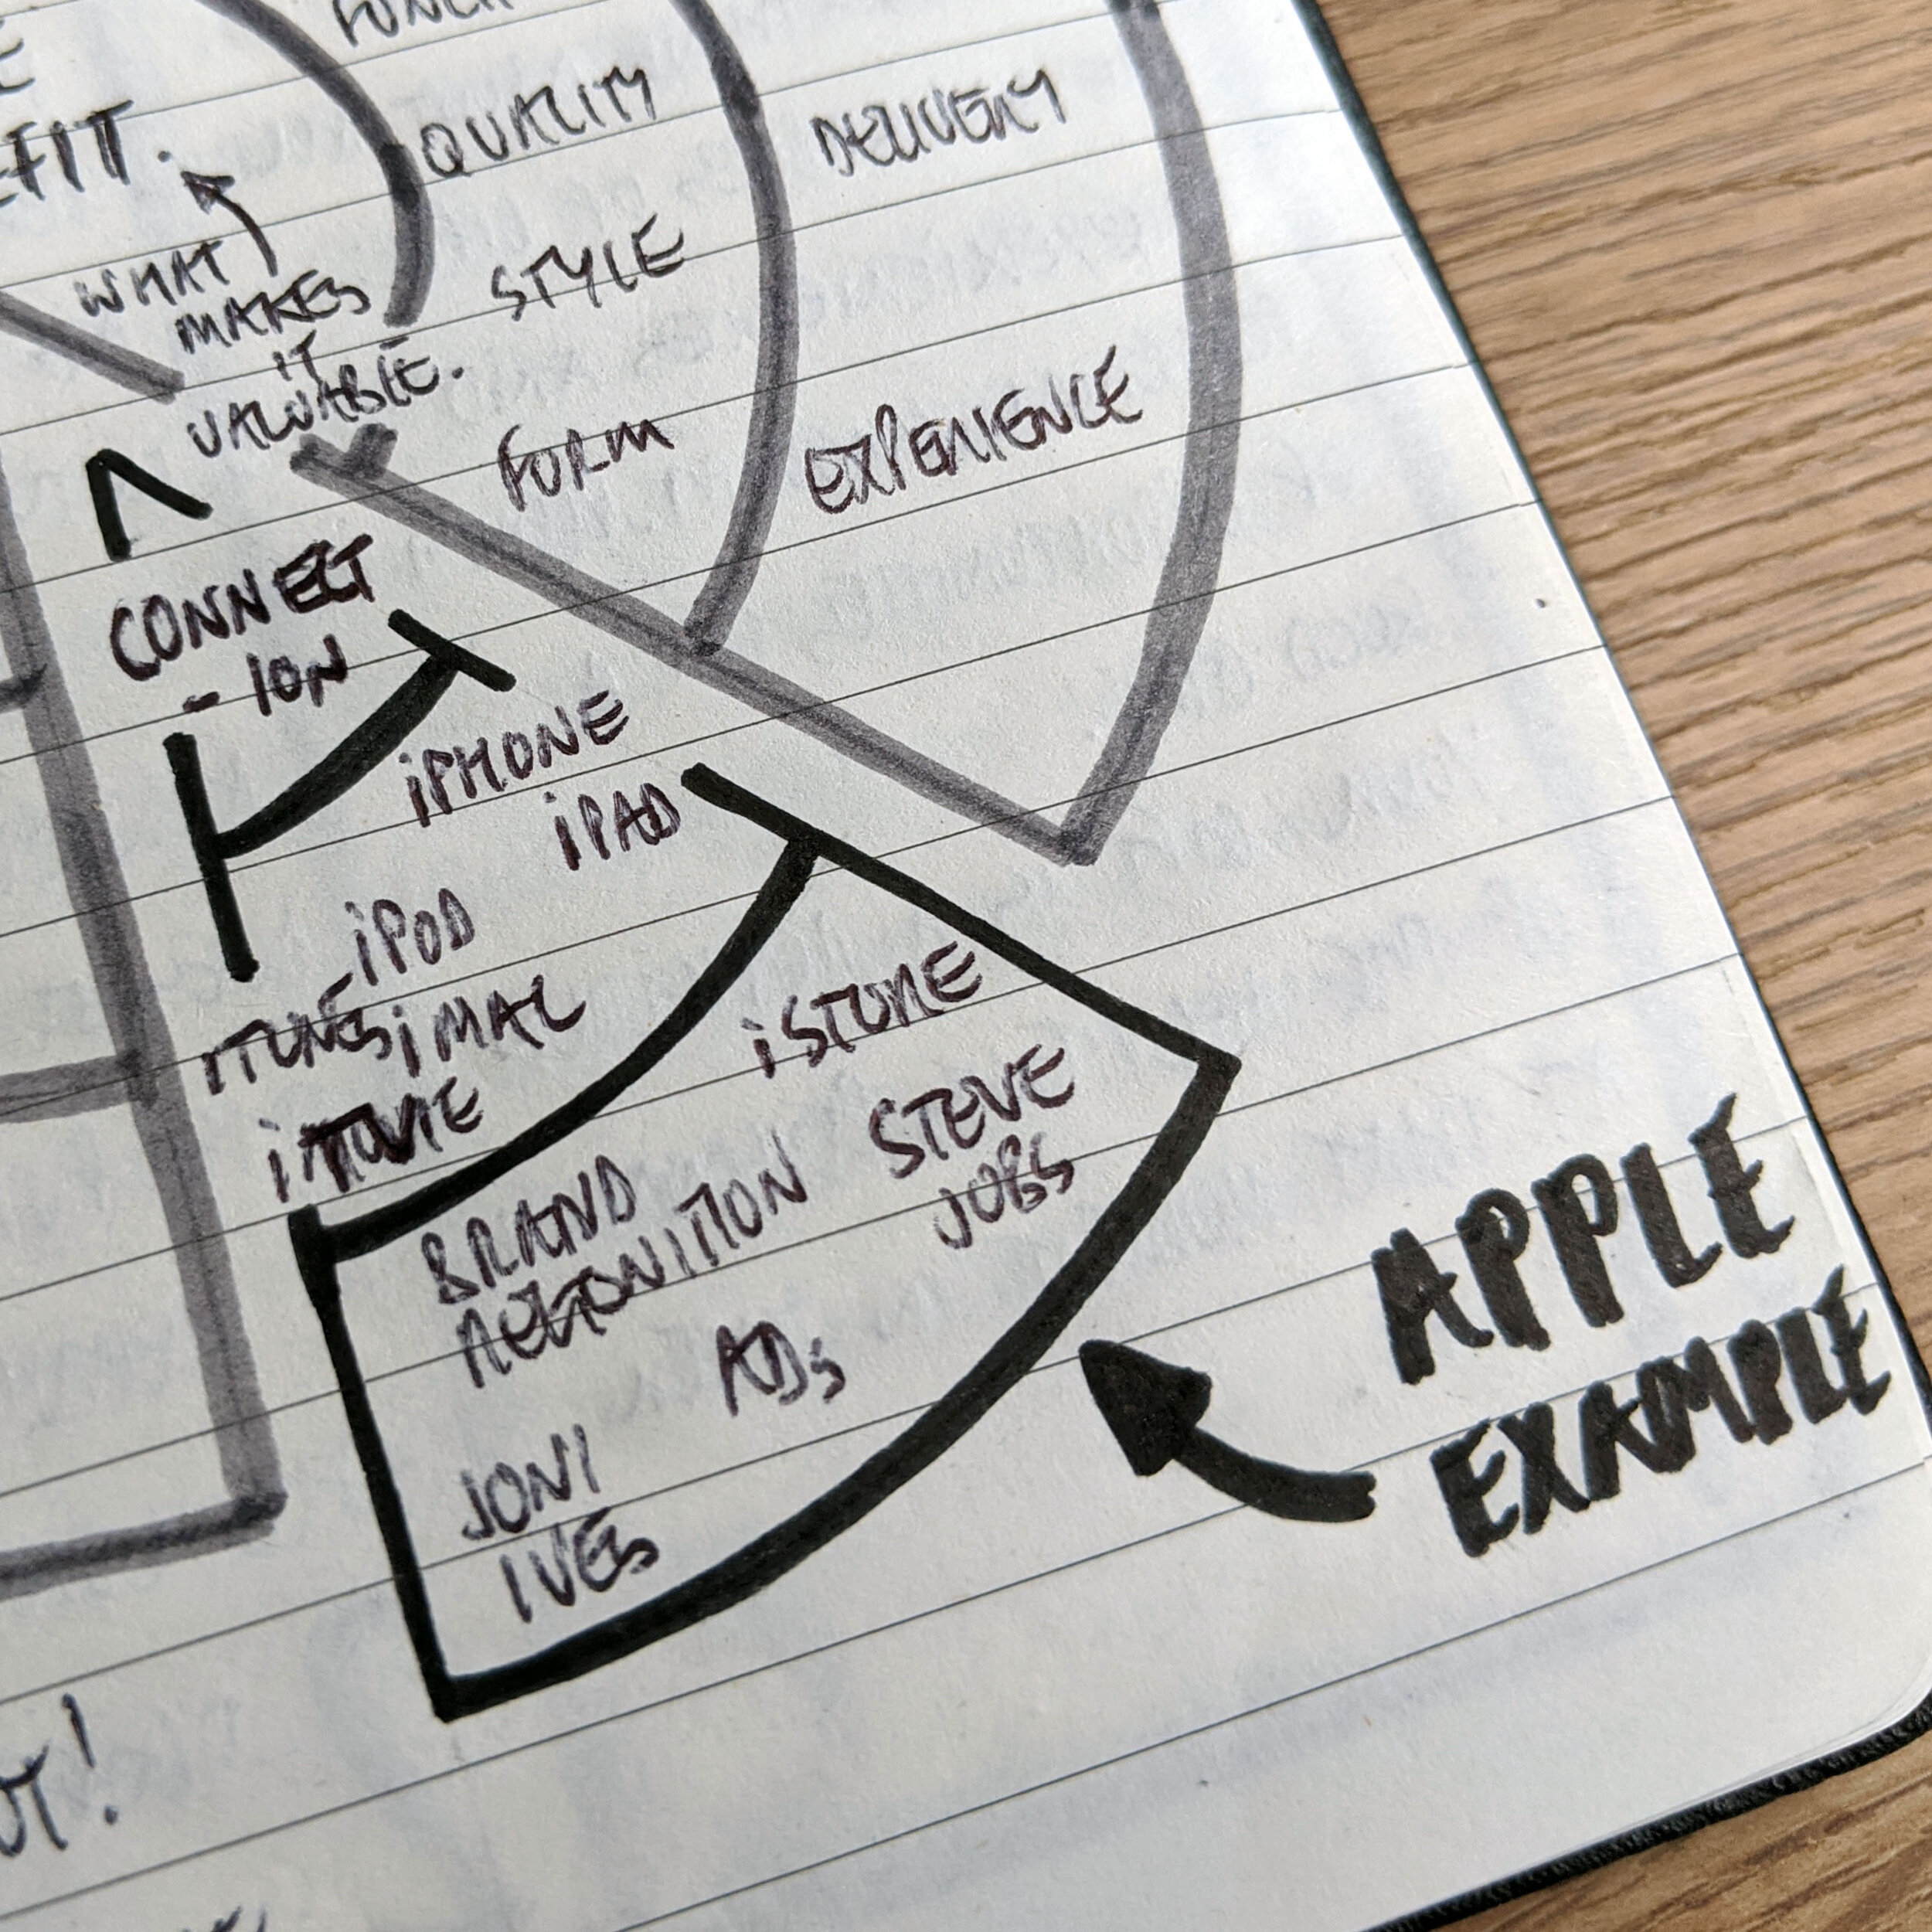 EFIT.
QUALITY
DELIVERY
WHAT
MAKES
IT
VALUABLE.
STYLE
FORM
EXPERIENCE
CONNECT
- ION
iPHONE
iPAD
iPOD
ITUNES iMAC
iMOVIE
iSTORE
STEVE
JOBS
BRAND
RECGONITION
ADs
JONI
IVES
APPLE
EXAMPLE